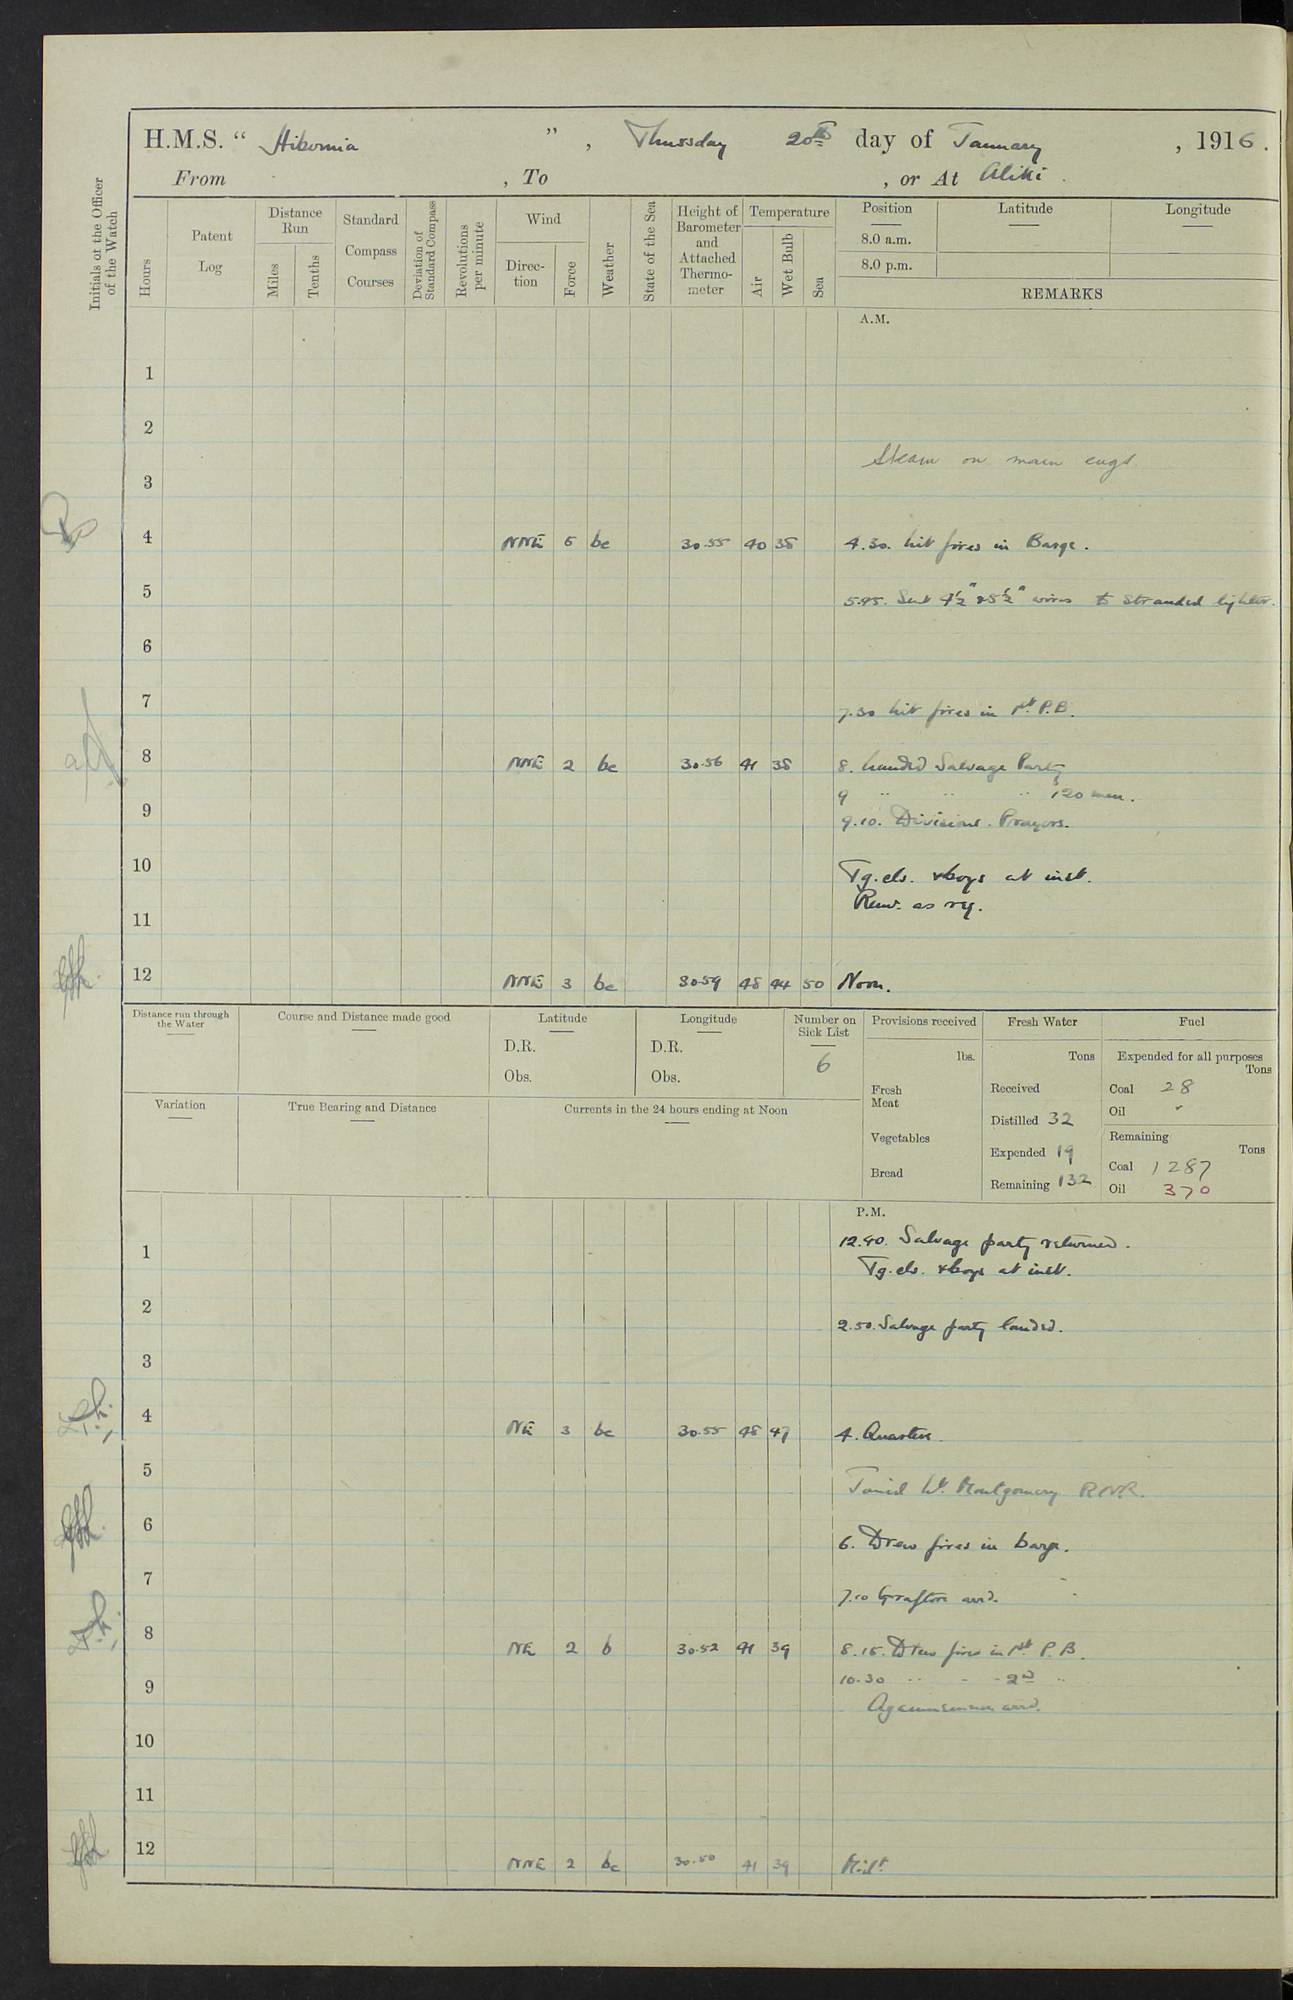 H.M.S. " Hibernia ", Thursday 20th day of January, 1916.
From , To , or At Aliki.
Initials of the Officer of the Watch
Hours
Patent Log
Distance Run
Miles
Tenths
Standard Compass Courses
Deviation of Standard Compass
Revolutions per minute
Wind
Direction
Force
Weather
State of the Sea
Height of Barometer and Attached Thermometer
Temperature
Air
Wet Bulb
Sea
Position
8.0 a.m.
8.0 p.m.
Latitude
Longitude
REMARKS
A.M.
1
2
Steam on main engs.
3
4 NNE 5 bc 30.55 40 38 4.30. Lit fires in Barge.
5 5.45. Sent 4½" & 5½" wires to stranded lighter.
6
7 7.30 Lit fires in 1st P.B.
8 NNE 2 bc 30.56 41 38 8. Landed Salvage Party
9 " " " 120 men.
9 9.10. Divisions. Prayers.
10 Tg. cls. & boys at inst.
Remr. as req.
11
12 NNE 3 bc 30.59 48 44 50 Noon.
Distance run through the Water
Course and Distance made good
Latitude
D.R.
Obs.
Longitude
D.R.
Obs.
Number on Sick List
6
Provisions received
lbs.
Fresh Meat
Vegetables
Bread
Fresh Water
Tons
Received
Distilled 32
Expended 19
Remaining 132
Fuel
Expended for all purposes
Tons
Coal 28
Oil "
Remaining
Tons
Coal 1287
Oil 370
Variation
True Bearing and Distance
Currents in the 24 hours ending at Noon
P.M.
12.40. Salvage party returned.
1 Tg. cls. & boys at inst.
2 2.50. Salvage party landed.
3
4 NE 3 bc 30.55 48 47 4. Quarters.
5 Joined Lt. Montgomery R.N.R.
6 6. Drew fires in barge.
7 7.10 Grafton arrd.
8 NE 2 b 30.52 41 39 8.15. Drew fires in 1st P.B.
10.30 " " " 2nd "
9 Agamemnon arrd.
10
11
12 NNE 2 bc 30.50 41 39 Midt.